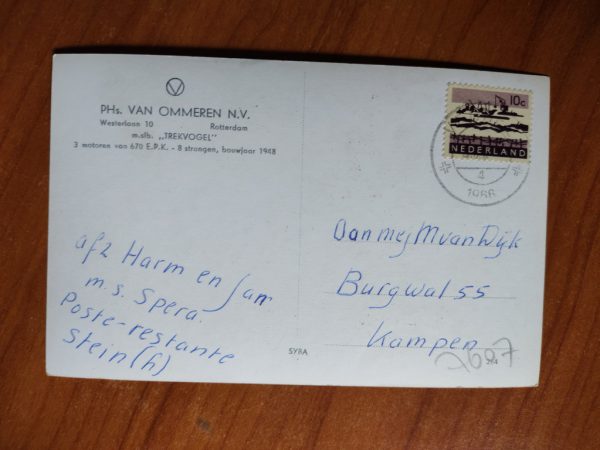 PHs. VAN OMMEREN N.V.
Westerlaan 10 Rotterdam
m.slb. „TREKVOGEL"
3 motoren van 670 E.P.K. - 8 strangen, bouwjaar 1948
10c
NEDERLAND
4
1966
afz Harm en Jan
m.s. Spera.
Poste-restante
Stein (h)
Aan mej M van Dijk
Burgwal 55
Kampen
SYRA